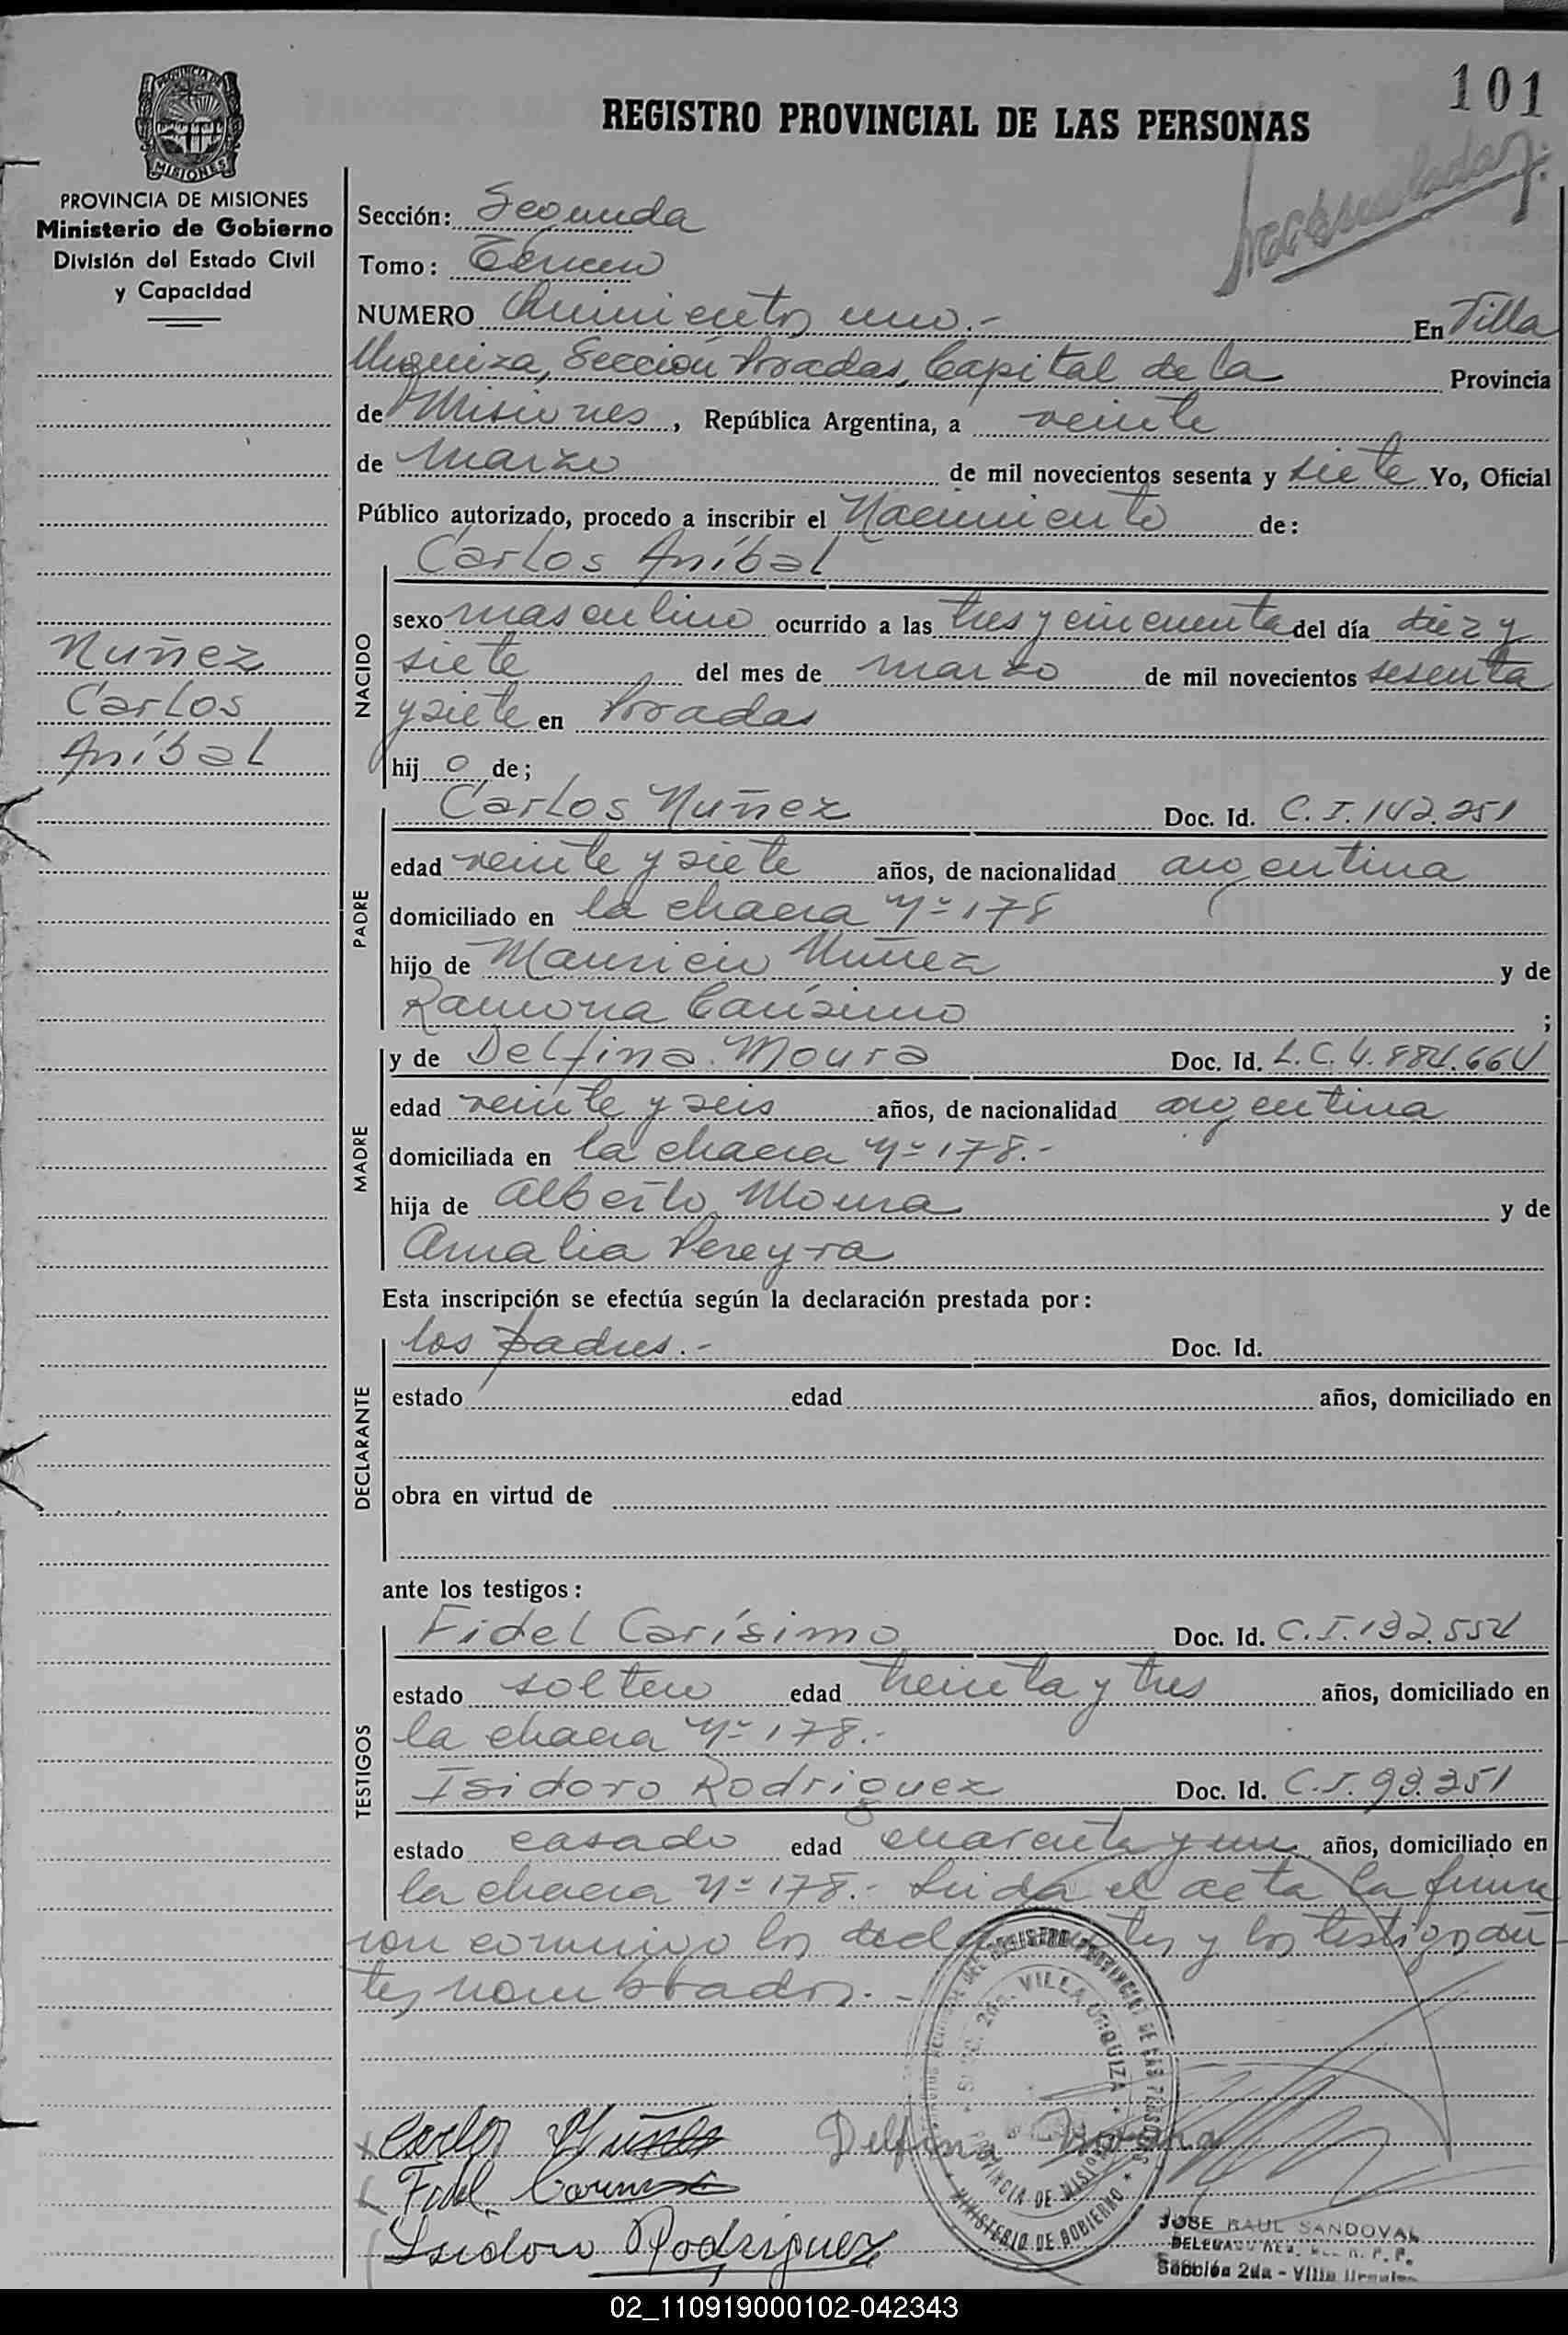 101
REGISTRO PROVINCIAL DE LAS PERSONAS
PROVINCIA DE
MISIONES
PROVINCIA DE MISIONES
Ministerio de Gobierno
División del Estado Civil
y Capacidad
Nuñez
Carlos
Aníbal
Sección: Segunda
Tomo: Tercero
NUMERO Quinientos uno.- En Villa
Urquiza, Sección Posadas, Capital de la Provincia
de Misiones, República Argentina, a veinte
de Marzo de mil novecientos sesenta y siete Yo, Oficial
Público autorizado, procedo a inscribir el Nacimiento de:
NACIDO
Carlos Aníbal
sexo masculino ocurrido a las tres y cincuenta del día diez y
siete del mes de marzo de mil novecientos sesenta
y siete en Posadas
hij o de;
PADRE
Carlos Nuñez Doc. Id. C.I. 142.251
edad veinte y siete años, de nacionalidad argentina
domiciliado en la chacra Nº 178
hijo de Mauricio Nuñez y de
Ramona Carísimo ;
MADRE
y de Delfina Moura Doc. Id. L.C. 4.884.664
edad veinte y seis años, de nacionalidad argentina
domiciliada en la chacra Nº 178.-
hija de Alberto Moura y de
Amalia Pereyra
Esta inscripción se efectúa según la declaración prestada por:
DECLARANTE
los padres.- Doc. Id.
estado edad años, domiciliado en
obra en virtud de
ante los testigos:
TESTIGOS
Fidel Carísimo Doc. Id. C.I. 132.554
estado soltero edad treinta y tres años, domiciliado en
la chacra Nº 178.-
Isidoro Rodriguez Doc. Id. C.I. 93.351
estado casado edad cuarenta y un años, domiciliado en
la chacra Nº 178.- Leida el acta la firma
ron conmigo los declarantes y los testigos an
tes nombrados.-
VILLA URQUIZA
PROVINCIA DE MISIONES
MINISTERIO DE GOBIERNO
Carlos Nuñes Delfina
Fidel
Isidoro Rodriguez
JOSE RAUL SANDOVAL
R. P. P.
Sección 2da - Villa Urquiza
02_110919000102-042343